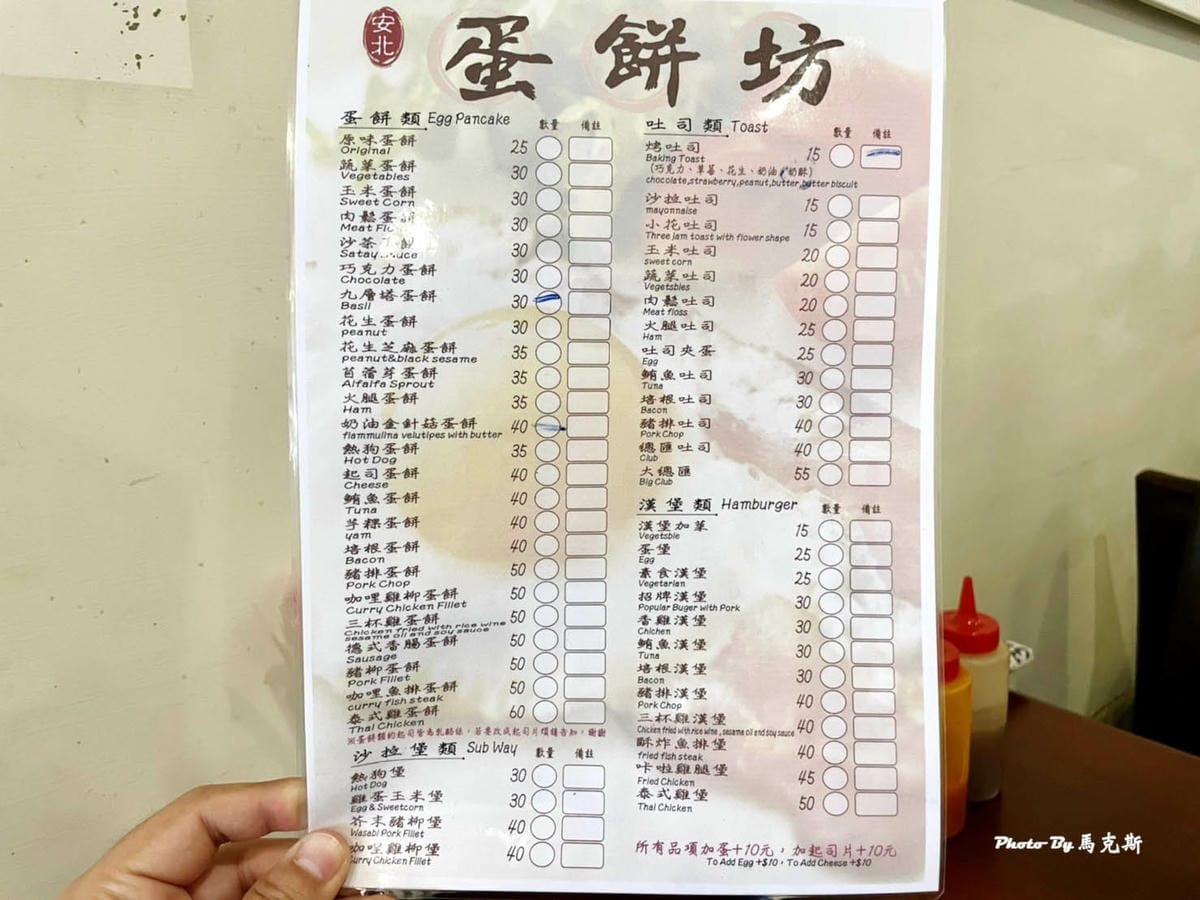 安北
蛋餅坊
蛋餅類 Egg Pancake 數量 備註
原味蛋餅 25
Original
蔬菜蛋餅 30
Vegetables
玉米蛋餅 30
Sweet Corn
肉鬆蛋餅 30
Meat
沙茶 餅 30
Satay
巧克力蛋餅 30
Chocolate
九層塔蛋餅 30
Basil
花生蛋餅 30
peanut
花生芝麻蛋餅 35
peanut&black sesame
苜蓿芽蛋餅 35
Alfalfa Sprout
火腿蛋餅 35
Ham
奶油金針菇蛋餅 40
flammulina velutipes with butter
熱狗蛋餅 35
Hot Dog
起司蛋餅 40
Cheese
鮪魚蛋餅 40
Tuna
芋粿蛋餅 40
yam
培根蛋餅 40
Bacon
豬排蛋餅 50
Pork Chop
咖哩雞柳蛋餅 50
Curry Chicken Fillet
三杯雞蛋餅 50
Chicken fried with rice wine
sesame oil and soy sauce
德式香腸蛋餅 50
Sausage
豬柳蛋餅 50
Pork Fillet
咖哩魚排蛋餅 50
curry fish steak
泰式雞蛋餅 60
Thai Chicken
※蛋餅類的起司皆為乳酪絲，若要改成起司片煩請告知，謝謝
沙拉堡類 Sub Way 數量 備註
熱狗堡 30
Hot Dog
雞蛋玉米堡 30
Egg & Sweetcorn
芥末豬柳堡 40
Wasabi Pork Fillet
咖哩雞柳堡 40
Curry Chicken Fillet
吐司類 Toast 數量 備註
烤吐司 15
Baking Toast
(巧克力、草莓、花生、奶油、奶酥)
chocolate,strawberry,peanut,butter,butter biscuit
沙拉吐司 15
mayonnaise
小花吐司 15
Three jam toast with flower shape
玉米吐司 20
sweet corn
蔬菜吐司 20
Vegetsbles
肉鬆吐司 20
Meat floss
火腿吐司 25
Ham
吐司夾蛋 25
Egg
鮪魚吐司 30
Tuna
培根吐司 30
Bacon
豬排吐司 40
Pork Chop
總匯吐司 40
Club
大總匯 55
Big Club
漢堡類 Hamburger 數量 備註
漢堡加菜 15
Vegetsble
蛋堡 25
Egg
素食漢堡 25
Vegetarian
招牌漢堡 30
Popular Buger with Pork
香雞漢堡 30
Chichen
鮪魚漢堡 30
Tuna
培根漢堡 30
Bacon
豬排漢堡 40
Pork Chop
三杯雞漢堡 40
Chicken fried with rice wine , sesame oil and soy sauce
酥炸魚排堡 40
fried fish steak
咔啦雞腿堡 45
Fried Chicken
泰式雞堡 50
Thai Chicken
所有品項加蛋+10元，加起司片+10元
To Add Egg +$10 , To Add Cheese +$10
Photo By 馬克斯